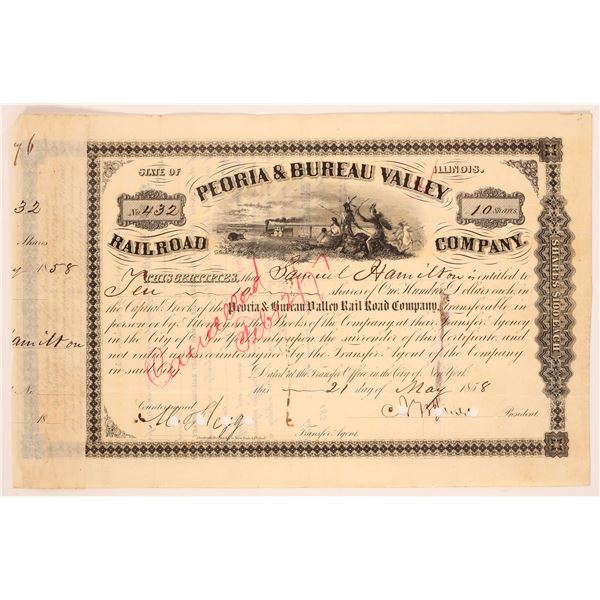 76
32
Shares
y 1858
amilton
No
18
STATE OF ILLINOIS.
PEORIA & BUREAU VALLEY
No. 432
10 Shares
RAILROAD COMPANY.
THIS CERTIFIES, that Samuel Hamilton is entitled to
Ten shares of One Hundred Dollars each, in
the Capital Stock of the Peoria & Bureau Valley Rail Road Company, Transferable in
person or by Attorney on the Books of the Company, at their Transfer Agency
in the City of New York, only upon the surrender of this Certificate, and
not valid unless countersigned by the Transfer Agent of the Company
in said City.
Dated at the Transfer Office in the City of New York
this 21 day of May 1858
Countersigned
President.
Transfer Agent.
SHARES $100 EACH
Cancelled